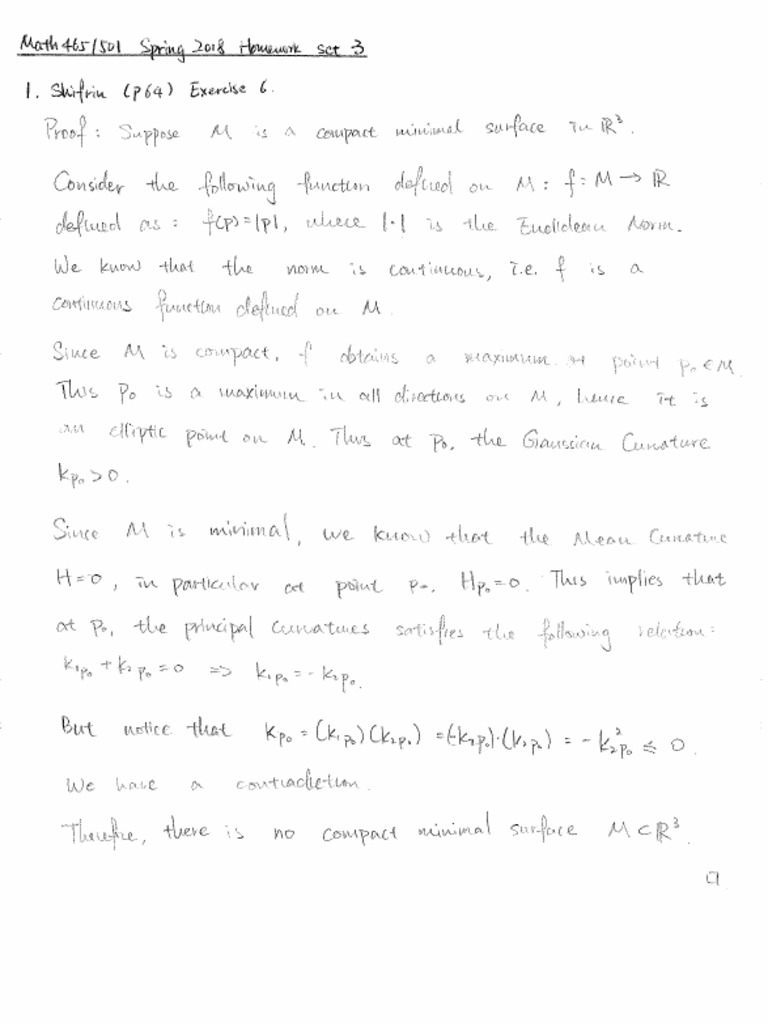 Math 465/501 Spring 2018 Homework set 3
1. Shifrin (P64) Exercise 6.
Proof: Suppose M is a compact minimal surface in ℝ³.
Consider the following function defined on M: f: M → ℝ
defined as: f(p)=|p|, where |·| is the Euclidean Norm.
We know that the norm is continuous, i.e. f is a
continuous function defined on M.
Since M is compact, f obtains a maximum at point p₀ ∈ M.
This p₀ is a maximum in all directions on M, hence it is
an elliptic point on M. Thus at p₀, the Gaussian Curvature
K_{p₀} > 0.
Since M is minimal, we know that the Mean Curvature
H=0, in particular at point p₀, H_{p₀}=0. This implies that
at p₀, the principal curvatures satisfies the following relation:
k_{1p₀} + k_{2p₀} = 0 ⇒ k_{1p₀} = - k_{2p₀}.
But notice that K_{p₀} = (k_{1p₀})(k_{2p₀}) = (-k_{2p₀})·(k_{2p₀}) = - k²_{2p₀} ≤ 0.
We have a contradiction.
Therefore, there is no compact minimal surface M ⊂ ℝ³.
□